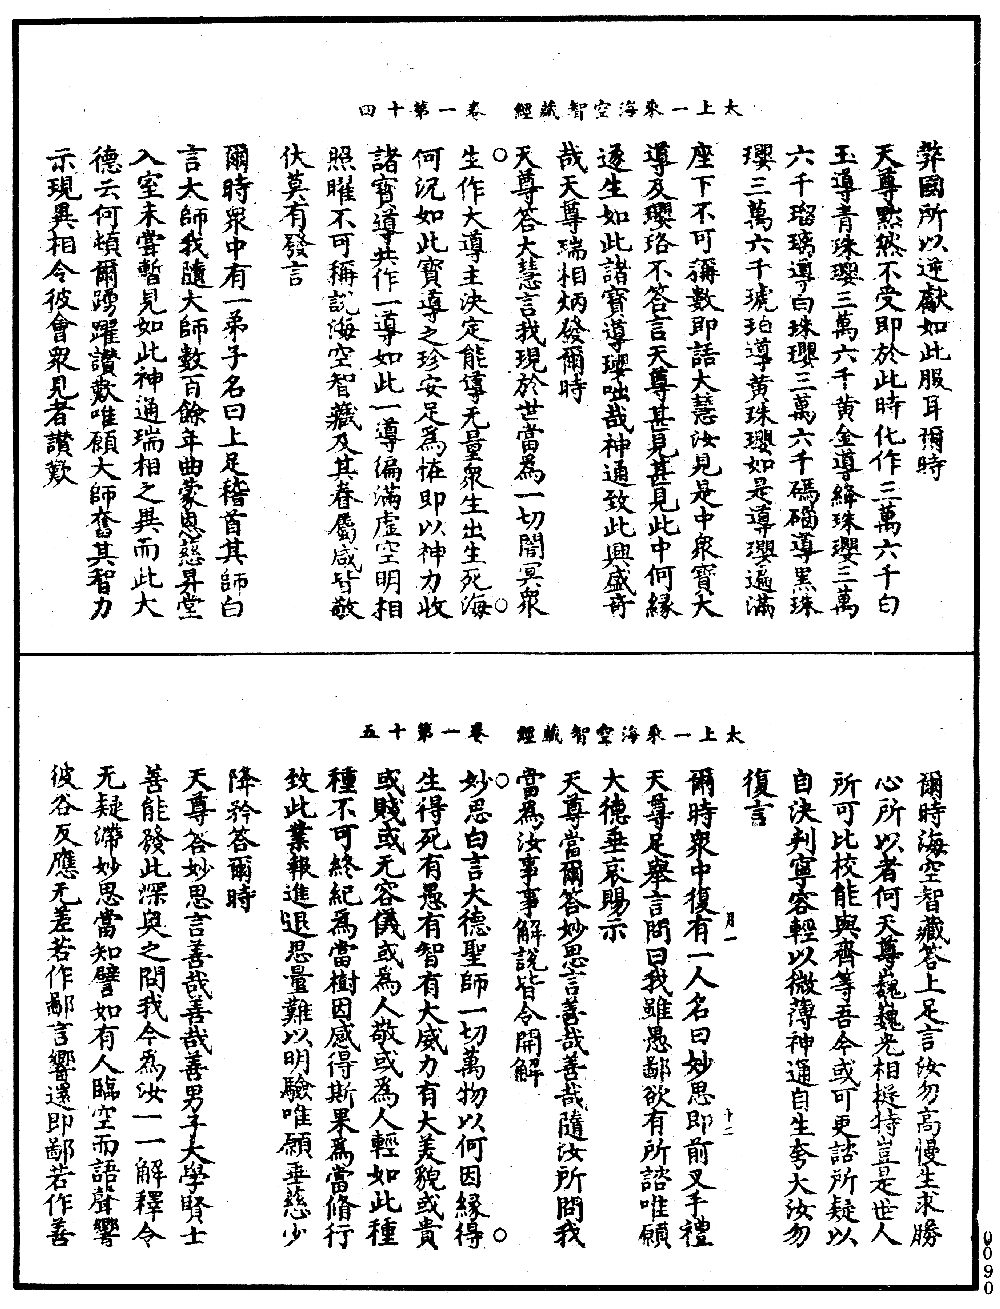 太上一乘海空智藏經　卷一第十四
弊國所以逆獻如此服耳爾時
天尊黙然不受即於此時化作三萬六千白
玉導青珠瓔三萬六千黃金導絳珠瓔三萬
六千瑠璃導白珠瓔三萬六千碼碯導黑珠
瓔三萬六千琥珀導黃珠瓔如是導瓔遍滿
座下不可稱數即語大慧汝見是中衆寶大
導及瓔珞不答言天尊甚見甚見此中何緣
遂生如此諸寶導瓔咄哉神通致此興盛奇
哉天尊瑞相炳發爾時
天尊答大慧言我現於世當爲一切闇冥衆
生作大導主決定能導无量衆生出生死海
何況如此寶導之珍安足爲恠即以神力收
諸寶導共作一導如此一導徧滿虛空明相
照曜不可稱說海空智藏及其眷屬咸皆敬
伏莫有發言
爾時衆中有一弟子名曰上足稽首其師白
言太師我隨大師數百餘年曲蒙恩慈昇堂
入室未嘗暫見如此神通瑞相之異而此大
德云何頓爾踴躍讃歎唯願大師奮其智力
示現異相令彼會衆見者讃歎
太上一乘海空智藏經　卷一第十五
爾時海空智藏答上足言汝勿高慢生求勝
心所以者何天尊巍巍光相挺特豈是世人
所可比校能與齊等吾今或可更詰所疑以
自決判寧容輕以微薄神通自生夸大汝勿
復言
爾時衆中復有一人名曰妙思即前叉手禮
天尊足舉言問曰我雖愚鄙欲有所諮唯願
大德垂哀賜示
天尊當爾答妙思言善哉善哉隨汝所問我
當爲汝事事解說皆令開解
妙思白言大德聖師一切萬物以何因緣得
生得死有愚有智有大威力有大美貌或貴
或賤或无容儀或爲人敬或爲人輕如此種
種不可終紀爲當樹因感得斯果爲當脩行
致此業報進退思量難以明驗唯願垂慈少
降矜答爾時
天尊答妙思言善哉善哉善男子大學賢士
善能發此深奥之問我今爲汝一一解釋令
无疑滯妙思當知譬如有人臨空而語聲響
彼谷反應无差若作鄙言響還即鄙若作善
月一
十二
0090